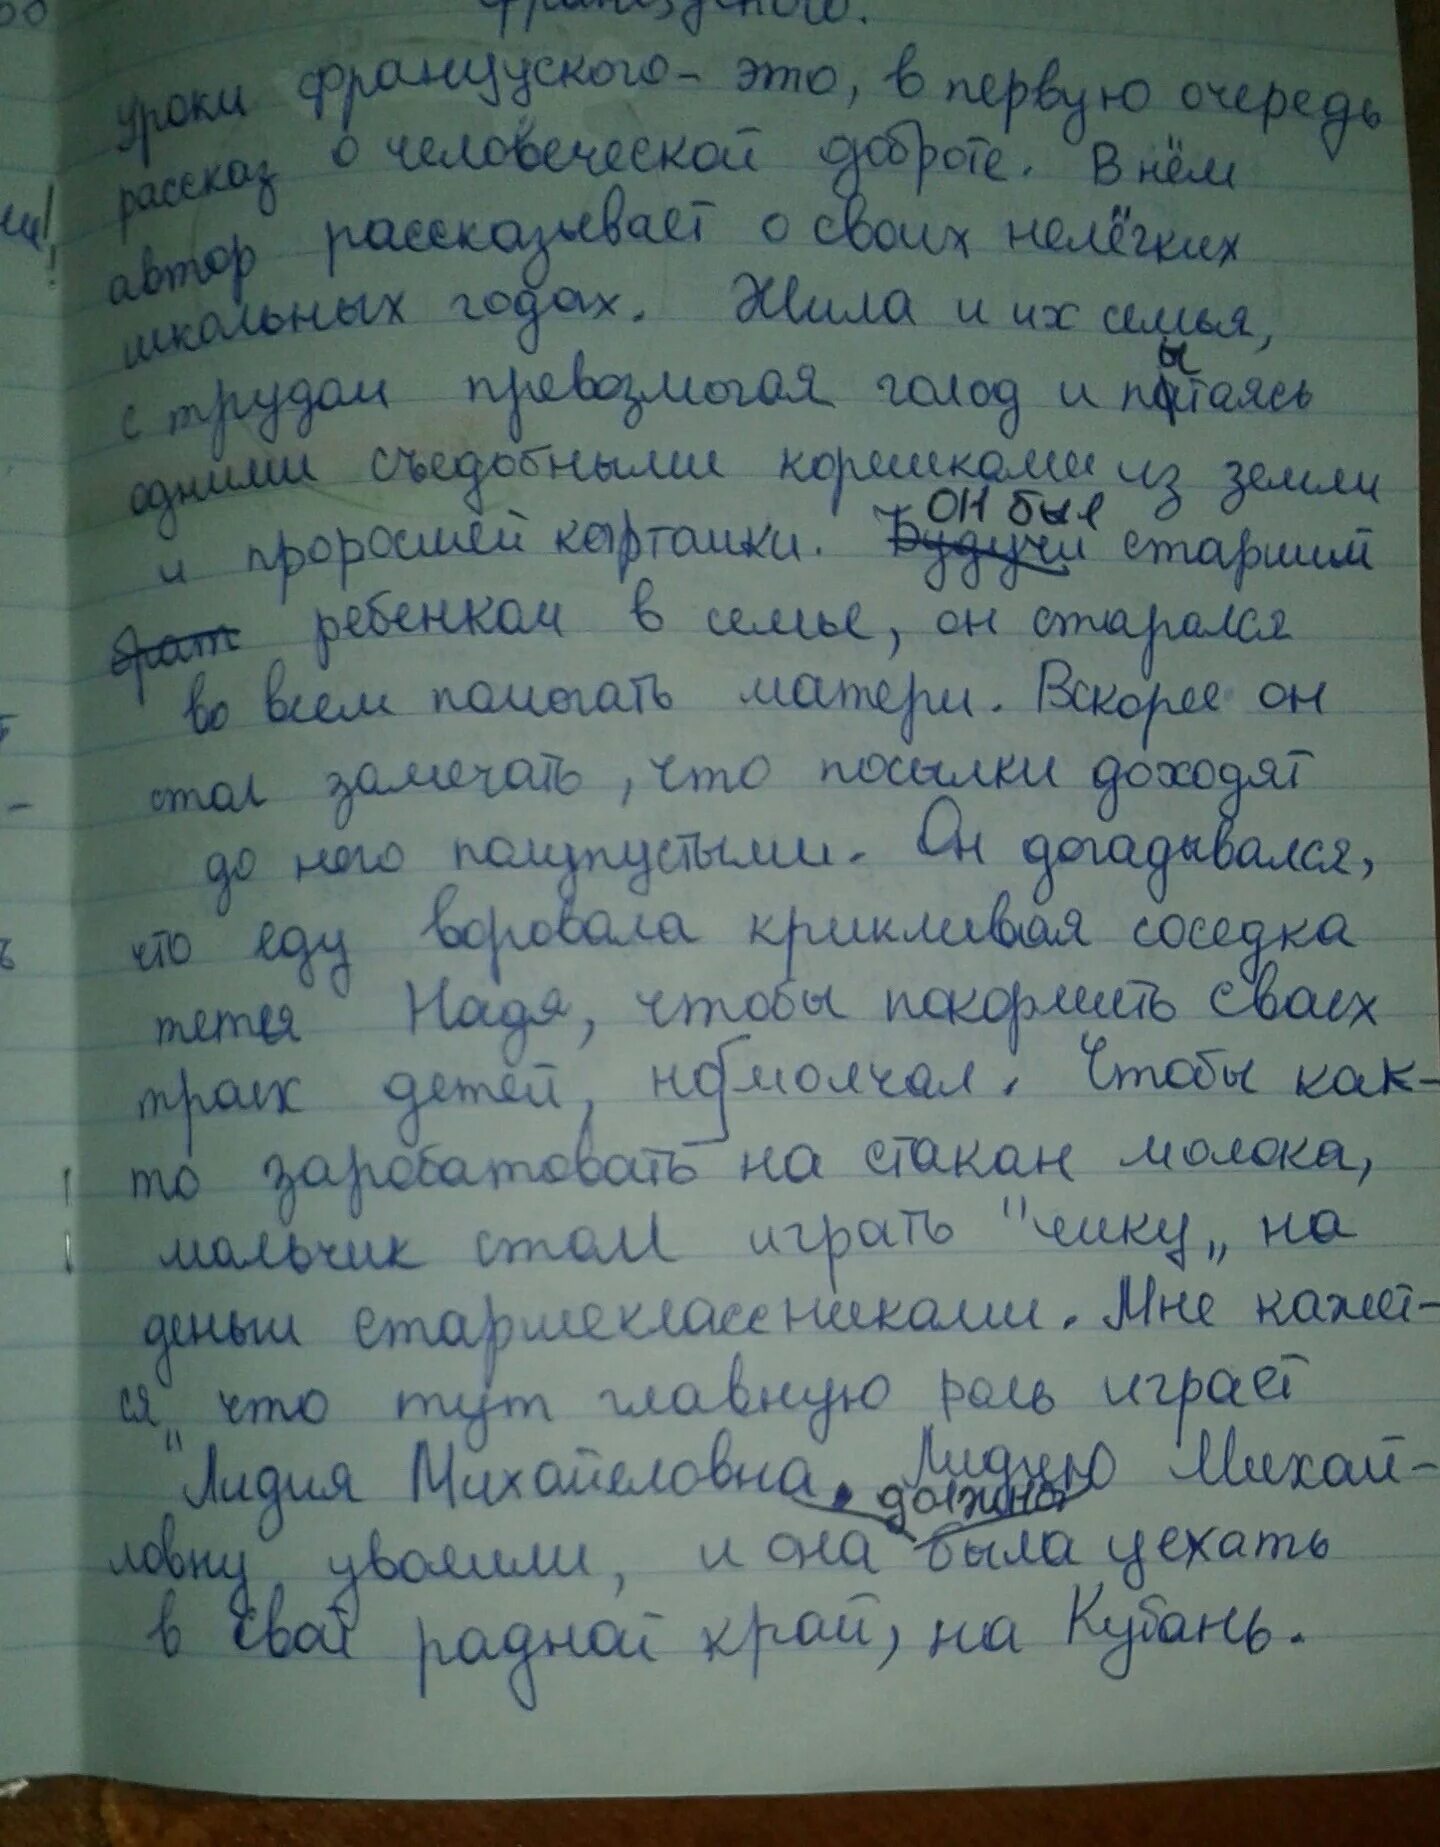 французского.
уроки французского - это, в первую очередь
рассказ о человеческой доброте. В нём
автор рассказывает о своих нелёгких
школьных годах. Жила и их семья,
с трудом превозмогая голод и пытаясь
одними съедобными корешками из земли
и проросшей картошки. Будучи он был старшим
брат ребенком в семье, он старался
во всем помогать матери. Вскоре он
стал замечать, что посылки доходят
до него полупустыми. Он догадывался,
что еду воровала крикливая соседка
тетя Надя, чтобы покормить своих
троих детей, но молчал. Чтобы как-
то заробатовать на стакан молока,
мальчик стал играть "чику„ на
деньги старшеклассниками. Мне кажет-
ся, что тут главную роль играет
"Лидия Михайеловна. Лидию Михай-
ловну уволили, и она должна была уехать
в свой радной край, на Кубань.